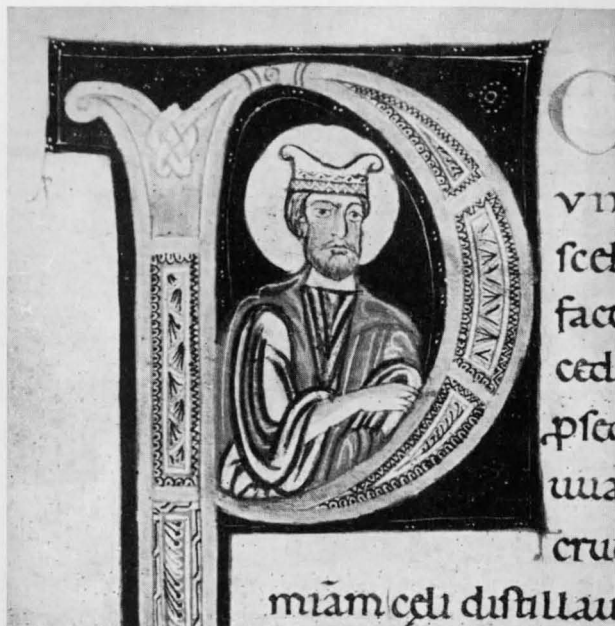 P
C
vn
scel
fact
ced
psec
uua
cru
miā celi distillau